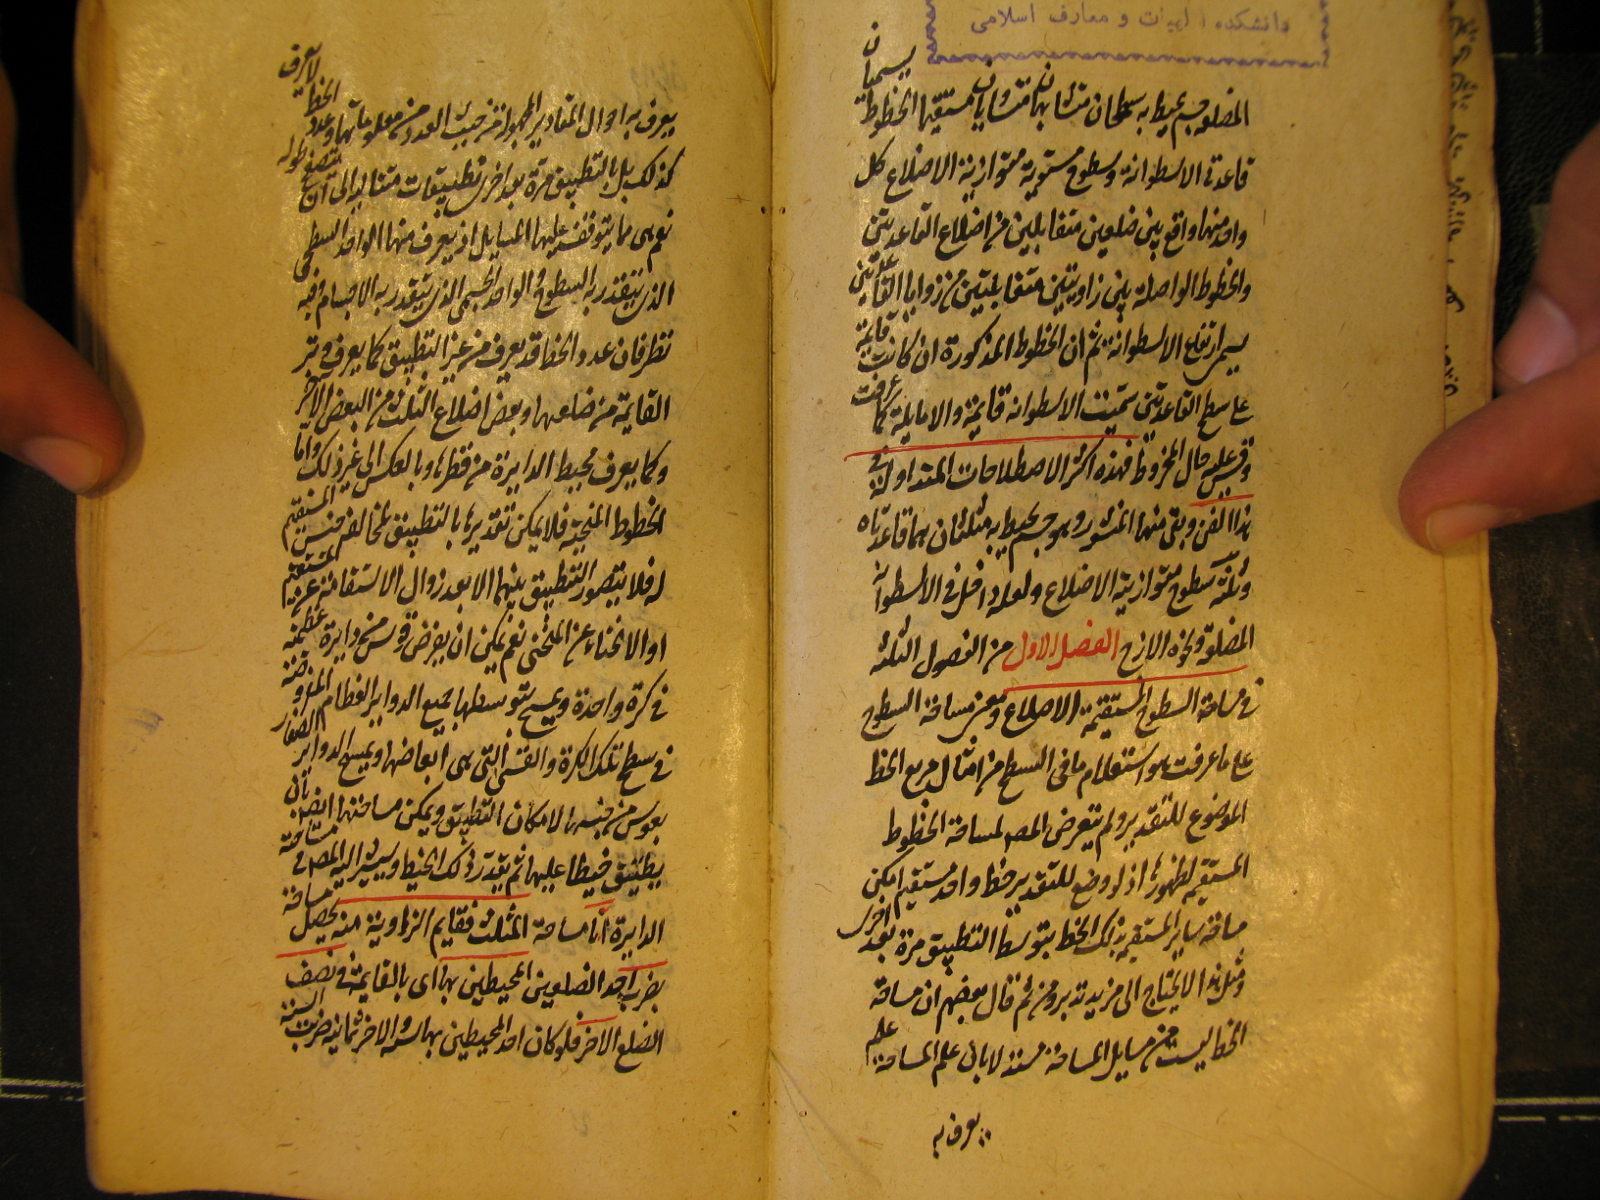 دانشكده الهيات و معارف اسلامى
المضلعه جسم يحيط به سطحان متشابهان متساويان مستقيما الخطوط يسميان
قاعدتى الاسطوانة وسطوح مستوية متوازية الاضلاع كل
واحد منها واقع بين ضلعين متقابلين من اضلاع القاعدتين
والخطوط الواصلة بين زاويتين متقابلتين من زوايا القاعدتين
يسمى ارتفاع الاسطوانة ثم ان الخطوط المذكورة ان كانت قايمة
على سطح القاعدتين سميت الاسطوانه قايمة والا مايلة كما عرفت
وقس عليه حال المخروط فهذه اكثر الاصطلاحات المتداولة فى
هذا الفن وبقى منها المنشور وهو جسم يحيط به مثلثان هما قاعدتاه
وثلثة سطوح متوازية الاضلاع ولعله داخل فى الاسطوانة
المضلعة وهذه الازج الفصل الاول من الفصول الثلثة
فى مساحة السطوح المستقيمة الاضلاع ومعنى مساحة السطوح
على ما عرفت هو استعلام ما فى السطح من امثال مربع الخط
الموضوع للتقدير ولم يتعرض المصه لمساحة الخطوط
المستقيمة لظهورها اذ لو وضع للتقدير خط واحد مستقيم امكن
مساحة ساير المستقيمة بذلك الخط بتوسط التطبيق مرة بعد اخرى
ومثل هذا لا يحتاج الى مزيد تدبر ومن ثم قال بعضهم ان مساحة
الخط ليست من مسايل المساحة مستدلا بان علم المساحة علم
يعرف به
يعرف به احوال المقادير المجهولة من حيث العدد من معلوماتها وعدد الخط لا يعرف
كذلك بل بالتطبيق مرة بعد اخرى تطبيقات متتالية الى ان يتضح طوله
نعم هى ما يتوقف عليها المسايل اذ يعرف منها الواحد السطحى
الذى يتقدر به السطوح والواحد الجسمى الذى يتقدر به الاجسام وفيه
نظر فان عدد الخط قد يعرف من غير التطبيق كما يعرف وتر
القايمة من ضلعيها وبعض اضلاع المثلث من البعض الآخر
وكما يعرف محيط الدايرة من قطرها وبالعكس الى غير ذلك واما
الخطوط المنحنية فلا يمكن تقديرها بالتطبيق لمخالفة جنس المستقيم
له فلا يتصور التطبيق بينهما الا بعد زوال الاستقامة عن المستقيم
او الانحناء عن المنحنى نعم يمكن ان يفرض قوس من دايرة عظيمة
فى كرة واحدة ويمسح بتوسطها جميع الدواير العظام المفروضة
فى سطح تلك الكرة والقسى التى هى ابعاضها ويمسح الدواير الصغار
بقوس من جنسها لامكان التطبيق ويمكن مساحتها ايضا بان
يطبق خيطا عليها ثم يقدر ذلك الخيط وسيشير اليه المصه فى مساحة
الدايرة اما مساحة المثلث فقايم الزاوية منه يحصل مساحته
بضرب احد الضلعين المحيطين بها اى بالقايمة فى نصف
الضلع الاخر فلو كان احد المحيطين بها ستة والاخر ثمانية ضربت الستة